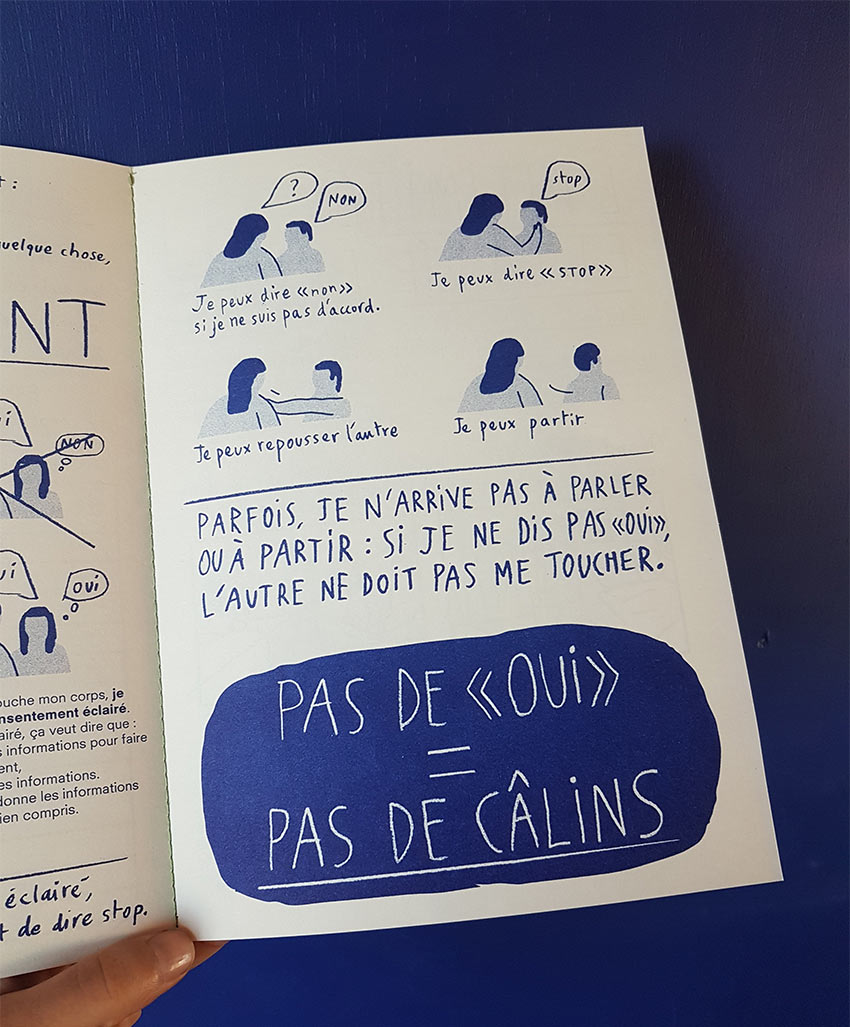 quelque chose,
NT
NON
OUI
ouche mon corps, je
nsentement éclairé.
airé, ça veut dire que :
s informations pour faire
ent,
es informations.
donne les informations
ien compris.
éclairé,
t de dire stop.
?
NON
Je peux dire «non»
si je ne suis pas d'accord.
stop
Je peux dire «STOP»
Je peux repousser l'autre
Je peux partir
PARFOIS, JE N'ARRIVE PAS À PARLER
OU À PARTIR : SI JE NE DIS PAS «OUI»,
L'AUTRE NE DOIT PAS ME TOUCHER.
PAS DE «OUI»
=
PAS DE CÂLINS